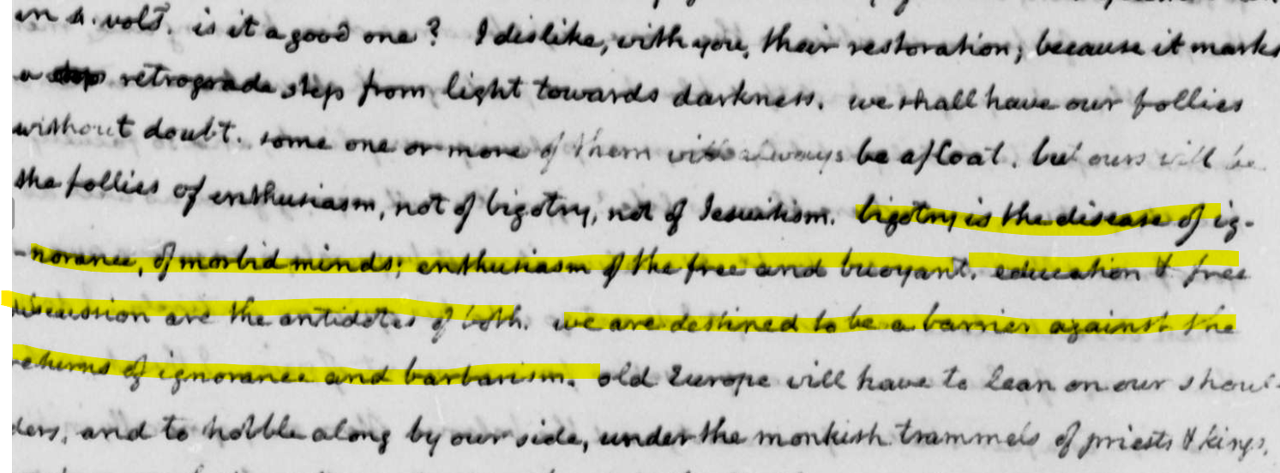 in 4. vols. is it a good one? I dislike, with you, their restoration; because it marks
a retrograde step from light towards darkness. we shall have our follies
without doubt. some one or more of them will always be afloat. but ours will be
the follies of enthusiasm, not of bigotry, not of Jesuitism. bigotry is the disease of ig-
-norance, of morbid minds; enthusiasm of the free and buoyant. education & free
discussion are the antidotes of both. we are destined to be a barrier against the
returns of ignorance and barbarism. old Europe will have to lean on our shoul-
ders, and to hobble along by our side, under the monkish trammels of priests & kings,